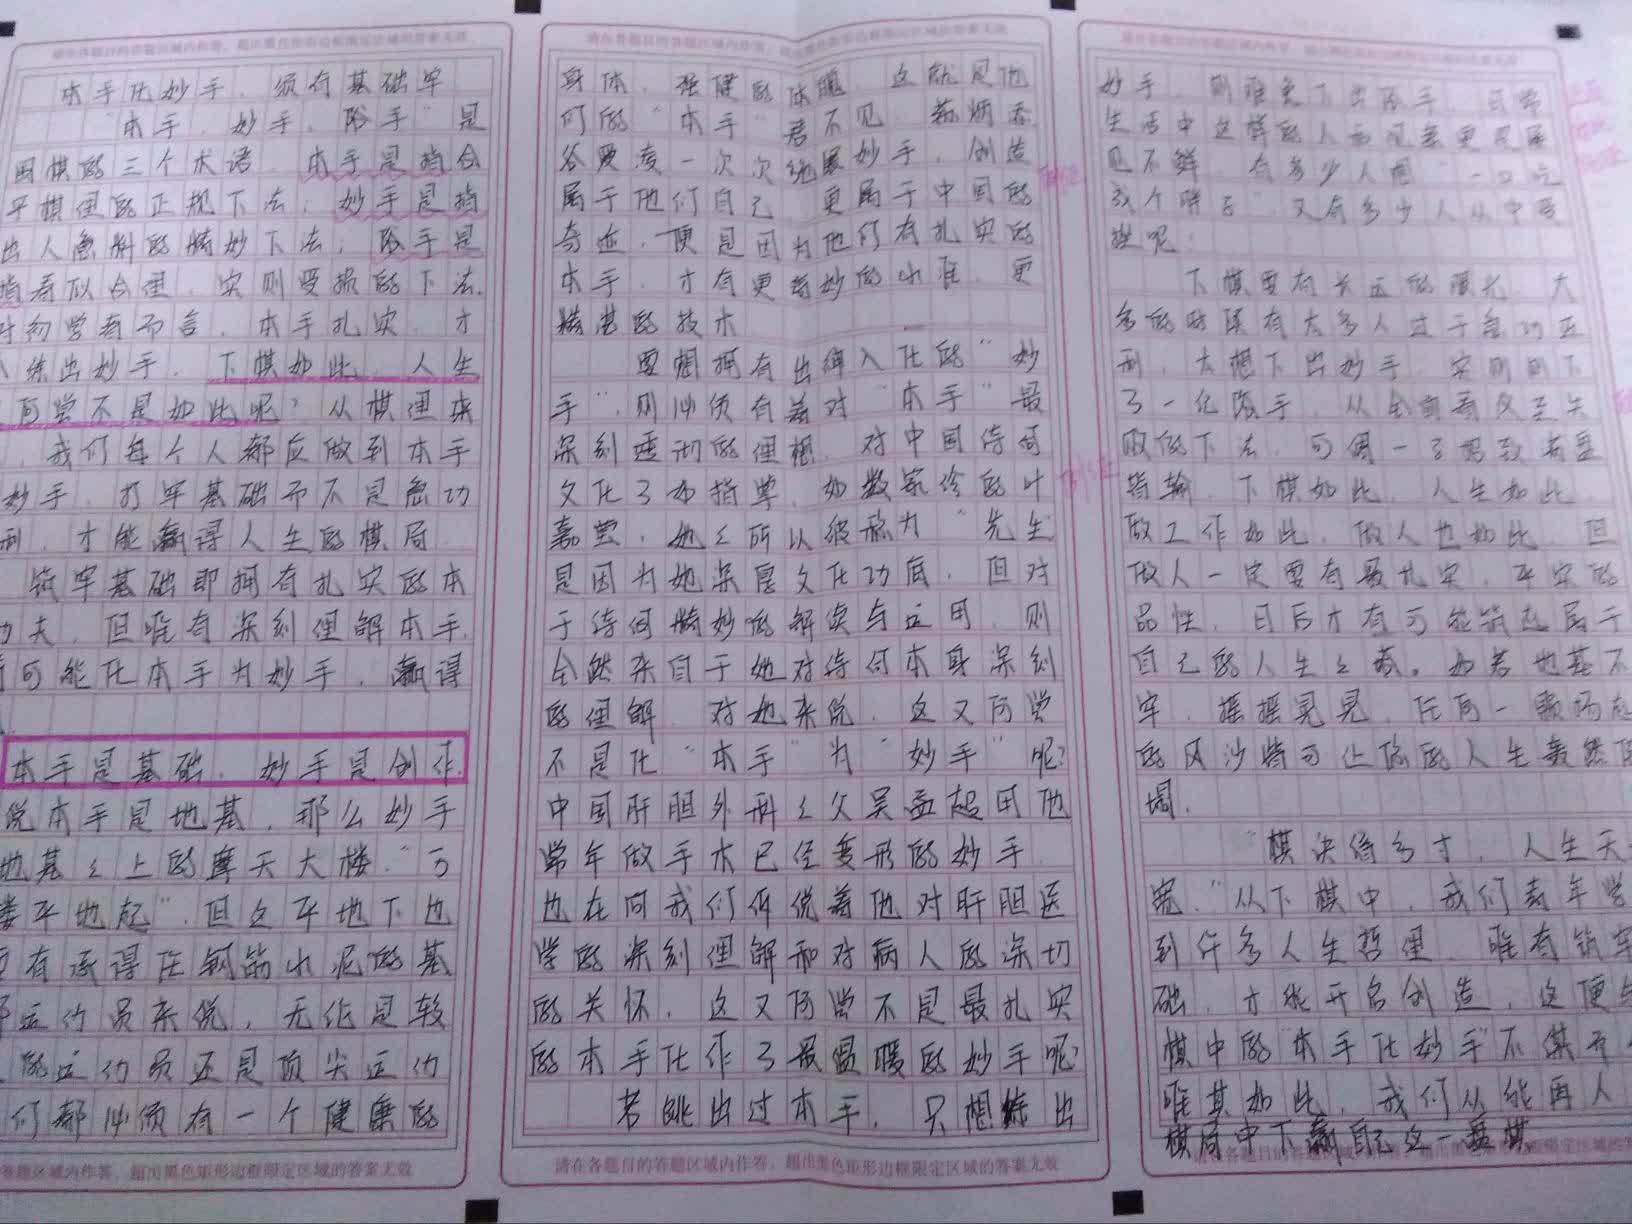 请在各题目的答题区域内作答，超出黑色矩形边框限定区域的答案无效
本手化妙手，须有基础牢
“本手，妙手，俗手”是
围棋的三个术语，本手是指合
乎棋理的正规下法；妙手是指
出人意料的精妙下法；俗手是
指看似合理，实则受损的下法。
对初学者而言，本手扎实，才
练出妙手。下棋如此，人生
何尝不是如此呢？从棋理来
，我们每个人都应做到本手
妙手，打牢基础而不是急功
利，才能赢得人生的棋局。
筑牢基础即拥有扎实的本
功夫，但唯有深刻理解本手，
可能化本手为妙手，赢得
本手是基础，妙手是创作，
说本手是地基，那么妙手
地基之上的摩天大楼。“万
娄平地起”，但这平地下也
有承得住钢筋水泥的基
运动员来说，无论是较
的运动员还是顶尖运动
们都必须有一个健康的
答题区域内作答，超出黑色矩形边框限定区域的答案无效
请在各题目的答题区域内作答，超出黑色矩形边框限定区域的答案无效
身体，强健的体魄，这就是他
们的“本手”君不见，苏炳添
谷爱凌一次次绝展妙手，创造
属于他们自己，更属于中国的
奇迹，便是因为他们有扎实的
本手，才有更奇妙的水准，更
精湛的技术
要想拥有出神入化的“妙
手”，则必须有着对“本手”最
深刻透彻的理想，对中国诗词
文化了如指掌，如数家珍的叶
嘉莹，她之所以被称为“先生
是因为她深厚文化功底，但对
于诗词精妙的解读与运用，则
全然来自于她对诗词本身深刻
的理解，对她来说，这又何尝
不是化“本手”为“妙手”呢？
中国肝胆外科之父吴孟超因他
常年做手术已经变形的妙手，
也在向我们诉说着他对肝胆医
学的深刻理解和对病人的深切
的关怀，这又何尝不是最扎实
的本手化作了最温暖的妙手呢？
若跳出过本手，只想练出
请在各题目的答题区域内作答，超出黑色矩形边框限定区域的答案无效
妙手，则难免下出俗手，日常
生活中这样的人和风景更是屡
见不鲜，有多少人想“一口吃
成个胖子”，又有多少人从中受
挫呢？
下棋要有长远的眼光，大
多的时候有太多人过于急功近
利，太想下出妙手，实则则下
了一亿俗手，从全局看反至失
败的下法，可谓一了想致满盘
皆输，下棋如此，人生如此
做工作如此，做人也如此，但
做人一定要有最扎实，平实的
品性，日后才有可能筑起属于
自己的人生之城。如若地基不
牢，摇摇晃晃，任何一颗扬起
的风沙皆可让你的人生轰然倒
塌。
“棋决得多寸，人生天
宽。”从下棋中，我们青年学
到许多人生哲理，唯有筑牢
础，才能开启创造，这便与
棋中的“本手化妙手”不谋而
唯其如此，我们从能再人
棋局中下赢自己这一盘棋